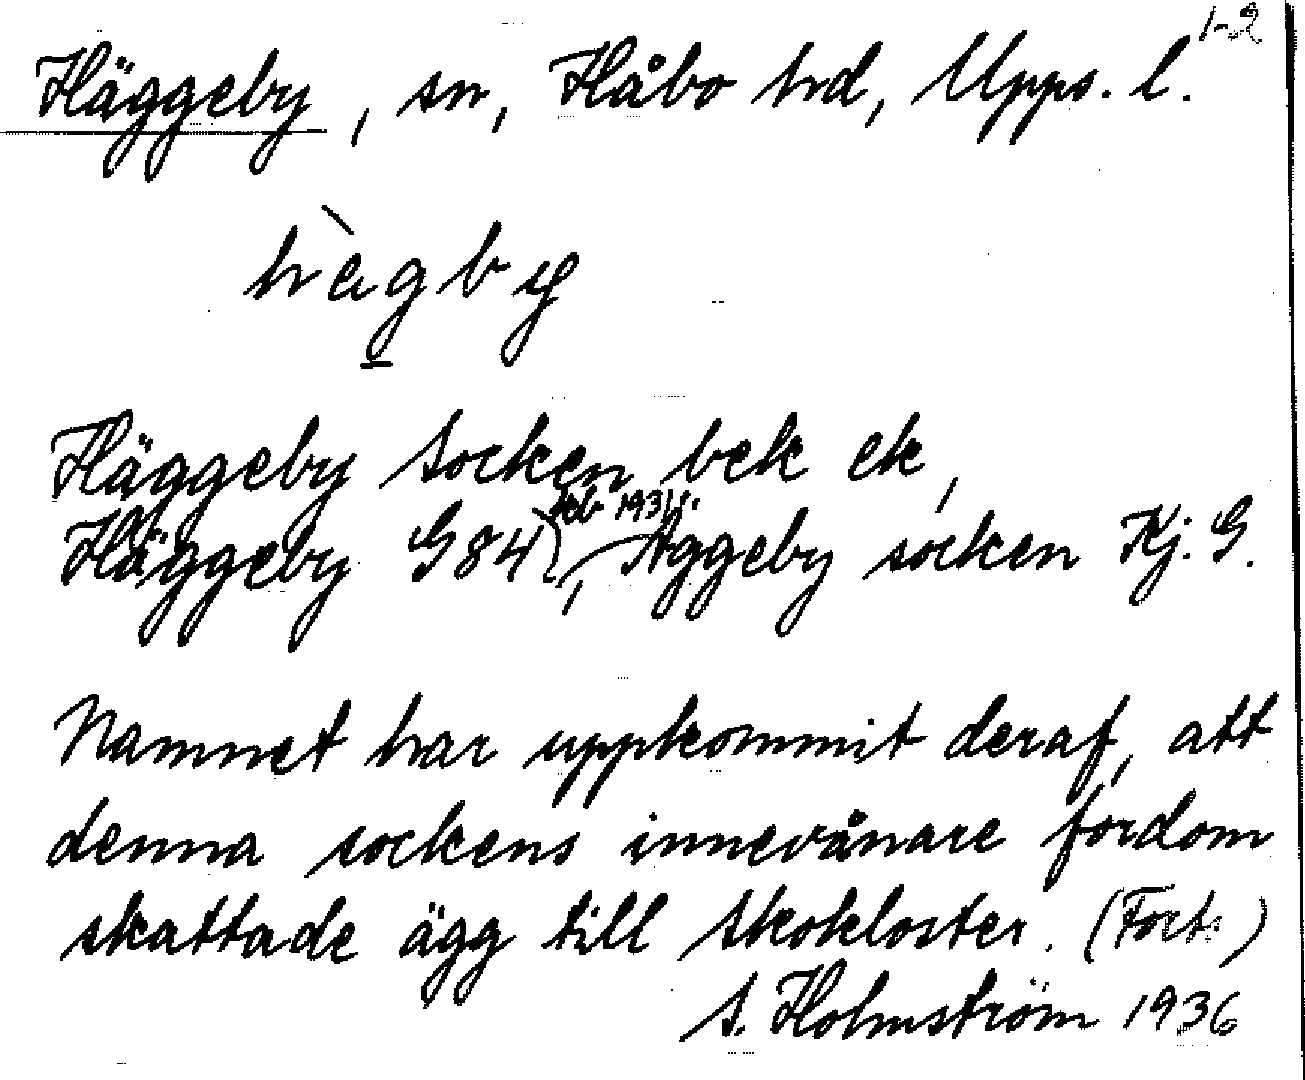 1-2
Häggeby, sn, Håbo hd, Upps. l.
hàgby
Häggeby socken bek ek,
feb 1931
Häggeby G 84, Äggeby socken Kj. G.
Namnet har uppkommit deraf, att
denna sockens innevånare fordom
skattade ägg till Skokloster. (Forts)
S. Holmström 1936